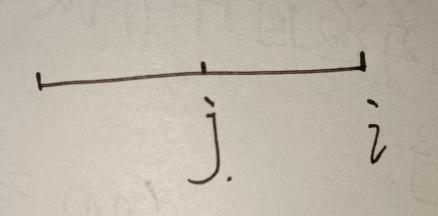 j. i